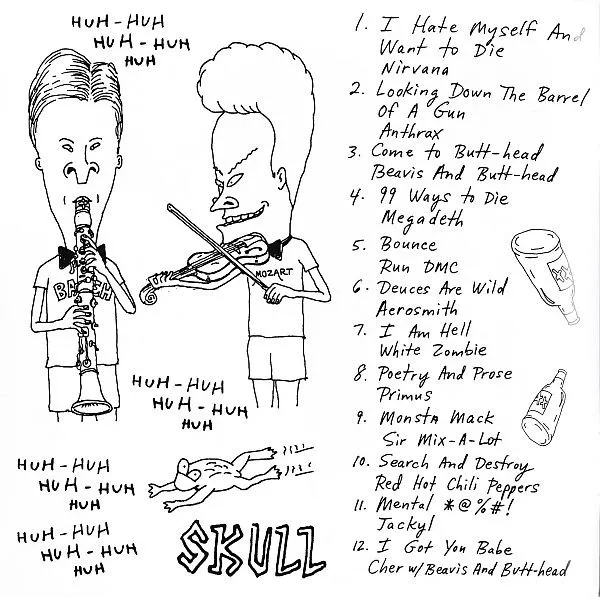 HUH-HUH
HUH-HUH
HUH
BACH
MOZART
HUH-HUH
HUH-HUH
HUH
HUH-HUH
HUH-HUH
HUH
HUH-HUH
HUH-HUH
HUH
SKULL
1. I Hate Myself And
Want to Die
Nirvana
2. Looking Down The Barrel
Of A Gun
Anthrax
3. Come to Butt-head
Beavis And Butt-head
4. 99 Ways to Die
Megadeth
5. Bounce
Run DMC
6. Deuces Are Wild
Aerosmith
7. I Am Hell
White Zombie
8. Poetry And Prose
Primus
9. Monsta Mack
Sir Mix-A-Lot
10. Search And Destroy
Red Hot Chili Peppers
11. Mental *@%#!
Jackyl
12. I Got You Babe
Cher w/ Beavis And Butt-head